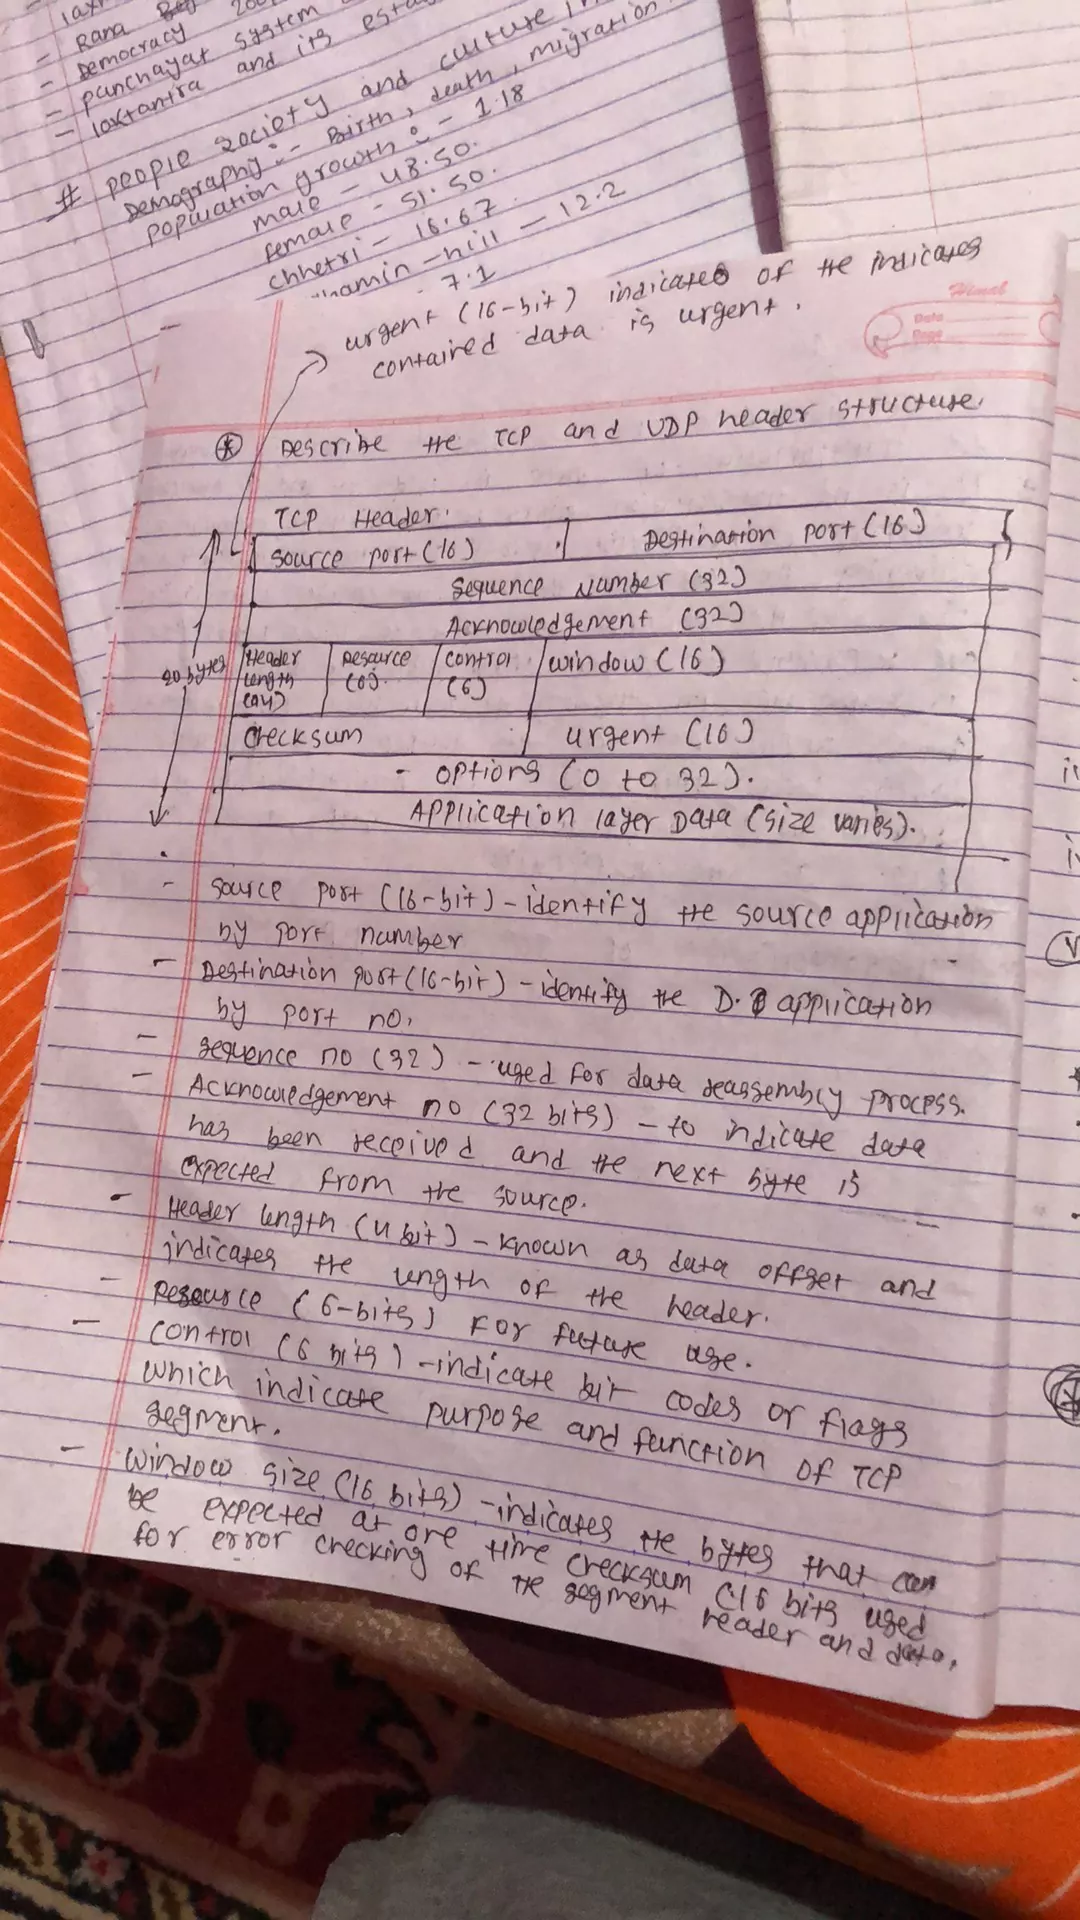 - Rana
- Democracy
- panchayat system
- loktantra and its
# people society and culture
Demography :- Birth, death, migration
population growth :- 1.18
male - 48.50.
female - 51.50.
chhetri - 16.67
hill - 12.2
7.1
urgent (16-bit) indicates of the indicates
contained data is urgent.
Himal
Date
Page
Describe the TCP and UDP header structure.
TCP Header.
source port (16) Destination port (16)
sequence Number (32)
Acknowledgement (32)
20 bytes
Header length Resource (6) control (6) window (16)
checksum urgent (16)
- options (0 to 32).
Application layer Data (size varies).
- source port (16-bit) - identify the source application
by port number
- Destination port (16-bit) - identify the D. application
by port no.
- sequence no (32) - used for data reassembly process.
- Acknowledgement no (32 bits) - to indicate data
has been received and the next byte is
expected from the source.
- Header length (4 bit) - known as data offset and
indicates the length of the header.
- Resource (6-bits) For future use.
- control (6 bits) - indicate bit codes or flags
which indicate purpose and function of TCP
segment.
- window size (16 bits) - indicates the bytes that can
be expected at one time checksum (16 bits used
for error checking of the segment header and data.